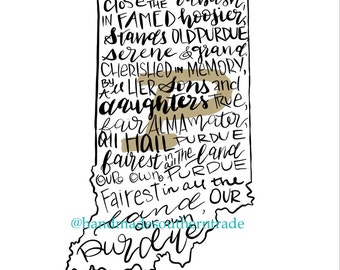 close THE wabash,
IN FAMED hoosier,
Stands OLD PURDUE
serene & grand
CHERISHED IN MEMORY,
By ALL HER Sons and
daughters TRUE,
fair ALMA mater,
All HAIL PURDUE
fairest in all the land
OUR OWN PURDUE
FAIREST in all the
land, OUR
own
purdue
@handmadesoutherntrade